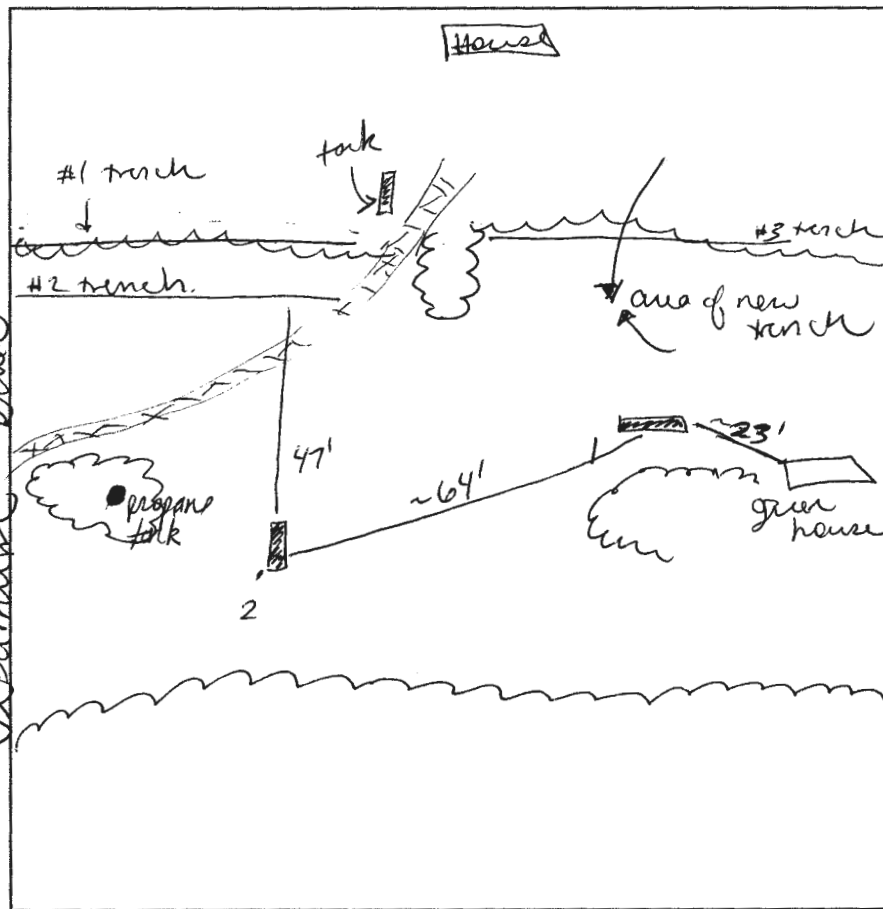 House
tank
#1 trench
#3 trench
#2 trench.
area of new
trench
47'
~64'
~23'
propane
tank
green
house
1
2